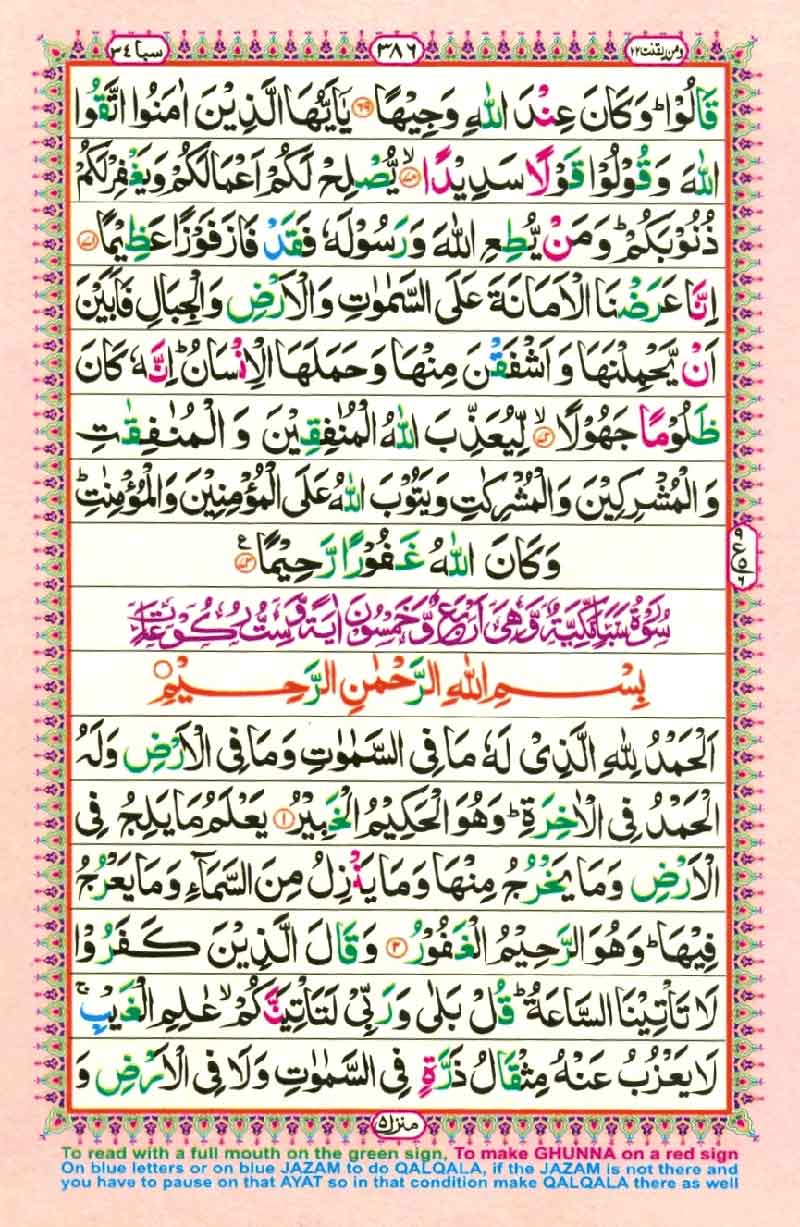 سبا ٣٤
٣٨٦
ومن یقنت ٢٢
قَالُوْا ؕ وَكَانَ عِنْدَ اللّٰهِ وَجِیْهًا ﴿٦٩﴾ یٰۤاَیُّهَا الَّذِیْنَ اٰمَنُوا اتَّقُوا
اللّٰهَ وَقُوْلُوْا قَوْلًا سَدِیْدًا ﴿٧٠﴾ۙ یُّصْلِحْ لَكُمْ اَعْمَالَكُمْ وَیَغْفِرْ لَكُمْ
ذُنُوْبَكُمْ ؕ وَمَنْ یُّطِعِ اللّٰهَ وَرَسُوْلَهٗ فَقَدْ فَازَ فَوْزًا عَظِیْمًا ﴿٧١﴾
اِنَّا عَرَضْنَا الْاَمَانَةَ عَلَی السَّمٰوٰتِ وَالْاَرْضِ وَالْجِبَالِ فَاَبَیْنَ
اَنْ یَّحْمِلْنَهَا وَاَشْفَقْنَ مِنْهَا وَحَمَلَهَا الْاِنْسَانُ ؕ اِنَّهٗ كَانَ
ظَلُوْمًا جَهُوْلًا ﴿٧٢﴾ۙ لِّیُعَذِّبَ اللّٰهُ الْمُنٰفِقِیْنَ وَالْمُنٰفِقٰتِ
وَالْمُشْرِكِیْنَ وَالْمُشْرِكٰتِ وَیَتُوْبَ اللّٰهُ عَلَی الْمُؤْمِنِیْنَ وَالْمُؤْمِنٰتِ ؕ
وَكَانَ اللّٰهُ غَفُوْرًا رَّحِیْمًا ﴿٧٣﴾ ع
٩ ع ٥ ٦
سُوْرَةُ سَبَاٍ مَّكِّیَّةٌ وَّهِیَ اَرْبَعٌ وَّخَمْسُوْنَ اٰیَةً وَّسِتُّ رُكُوْعَاتٍ
بِسْمِ اللّٰهِ الرَّحْمٰنِ الرَّحِیْمِ
اَلْحَمْدُ لِلّٰهِ الَّذِیْ لَهٗ مَا فِی السَّمٰوٰتِ وَمَا فِی الْاَرْضِ وَلَهُ
الْحَمْدُ فِی الْاٰخِرَةِ ؕ وَهُوَ الْحَكِیْمُ الْخَبِیْرُ ﴿١﴾ یَعْلَمُ مَا یَلِجُ فِی
الْاَرْضِ وَمَا یَخْرُجُ مِنْهَا وَمَا یَنْزِلُ مِنَ السَّمَآءِ وَمَا یَعْرُجُ
فِیْهَا ؕ وَهُوَ الرَّحِیْمُ الْغَفُوْرُ ﴿٢﴾ وَقَالَ الَّذِیْنَ كَفَرُوْا
لَا تَاْتِیْنَا السَّاعَةُ ؕ قُلْ بَلٰی وَرَبِّیْ لَتَاْتِیَنَّكُمْ ۙ عٰلِمِ الْغَیْبِ ۚ
لَا یَعْزُبُ عَنْهُ مِثْقَالُ ذَرَّةٍ فِی السَّمٰوٰتِ وَلَا فِی الْاَرْضِ وَ
منزل ٥
To read with a full mouth on the green sign, To make GHUNNA on a red sign
On blue letters or on blue JAZAM to do QALQALA, if the JAZAM is not there and
you have to pause on that AYAT so in that condition make QALQALA there as well